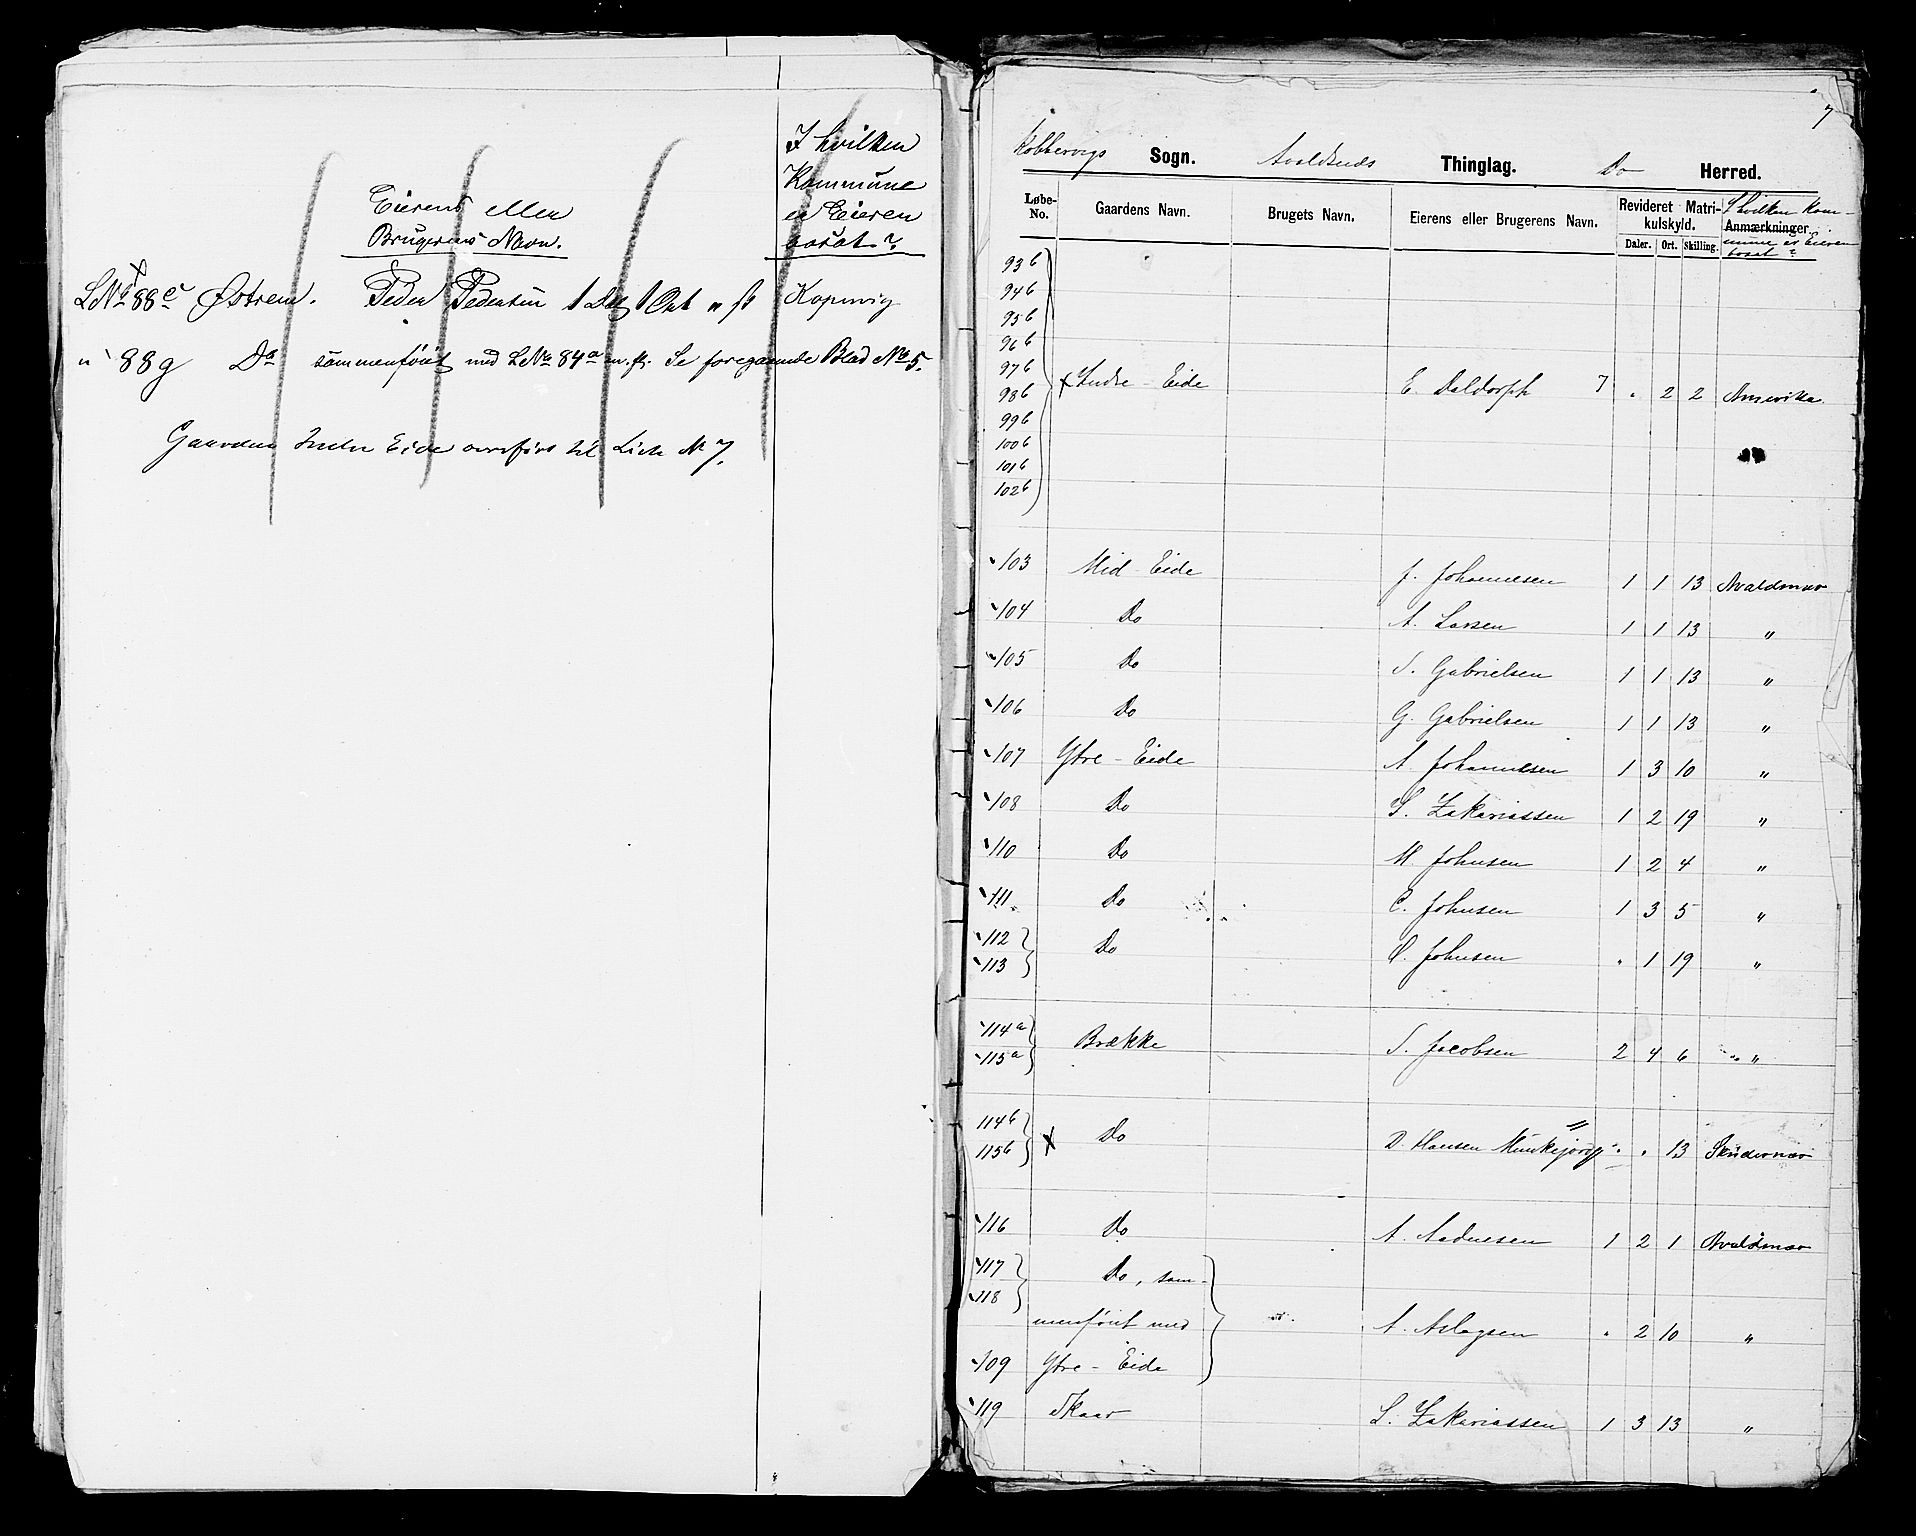 Eierens eller
Brugerens Navn.
I hvilken
Kommune
er Eieren
bosat?
LNo 88e Østrem. Peder Pedersen 1 Dal 1 Ort " ß Kopervig
" 88g Do sammenføiet med LNo 84a m. fl. Se foregaaende Blad No 5.
Gaarden Indre Eide overført til Liste No 7.
7
Kobbervigs Sogn. Avaldsnds Thinglag. Do Herred.
Løbe-No. Gaardens Navn. Brugets Navn. Eierens eller Brugerens Navn. Revideret Matrikulskyld. Daler. Ort. Skilling. Anmærkninger I hvilken Kommune er Eieren bosat?
93b
94b
95b
96b
97b
98b Indre - Eide E. Daldorph 7 " 2 2 Amerika
99b
100b
101b
102b
103 Mid - Eide J. Johannesen 1 1 13 Avaldsnæs
104 Do A. Larsen 1 1 13 "
105 Do S. Gabrielsen 1 1 13 "
106 Do G. Gabrielsen 1 1 13 "
107 Ytre - Eide A. Johannesen 1 3 10 "
108 Do S. Zakariassen 1 2 19 "
110 Do M. Johnsen 1 2 4 "
111 Do C. Johnsen 1 3 5 "
112
113 Do O. Johnsen " 1 19 "
114a
115a Brække S. Jacobsen 2 4 6 "
114b
115b Do D. Hansen Munkejord " " 13 Skudesnæs
116 Do A. Aadnesen 1 2 1 Avaldsnæs
117 Do, sam-
118
menføiet med A. Aslagsen " 2 10 "
109 Ytre - Eide
119 Skaar S. Zakariassen 1 3 13 "